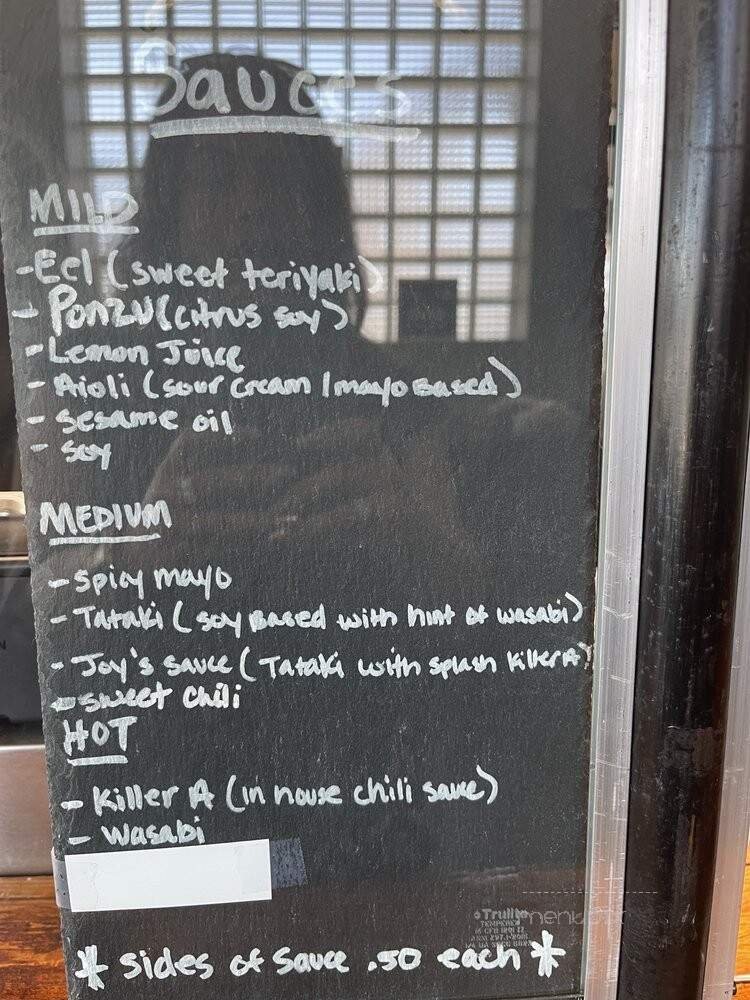 Sauces
MILD
- Eel (sweet teriyaki)
- Ponzu (citrus soy)
- Lemon Juice
- Aioli (sour cream / mayo Based)
- Sesame oil
- Soy
MEDIUM
- Spicy mayo
- Tataki (soy Based with hint of wasabi)
- Joy's sauce (Tataki with splash Killer A)
- sweet chili
HOT
- Killer A (in house chili sauce)
- Wasabi
Trulite
TEMPERED
* sides of Sauce .50 each *